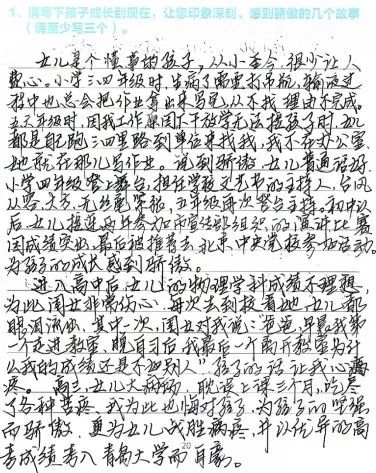 1、请写下孩子成长到现在，让您印象深刻、感到骄傲的几个故事
（请至少写三个）。
女儿是个懂事的孩子，从小至今，很少让人
费心。小学三、四年级时，生病了需要打吊瓶，输液过
程中也总会把作业拿出来写完，从不找理由不完成。
五六年级时，因我工作原因下午放学无法接孩子时，女儿
都是自己跑三四里路到单位来找我，我不在办公室，
她就在那儿写作业。说到骄傲，女儿普通话好，
小学四年级登上舞台，担任学校文艺节的主持人，台风
从容大方，无丝毫紧张，五年级再次登台主持。初中以
后，女儿接连两年参加市宣传部组织的演讲比赛
因成绩突出，最后被推荐去北京中央党校参加活动。
为孩子的成长感到骄傲。
进入高中后，女儿的物理学科成绩不理想，
为此闺女非常伤心，每次去到校看她，女儿都
眼泪流出，其中一次，闺女对我说：爸爸，早晨我第
一个走进教室，晚自习后，我最后一个离开教室，为什
么我的成绩还是不如别人”孩子的话让我心痛
疼。 高三，女儿大病一场，耽误上课三个月，吃尽
了各种苦疼，我为此也愧对孩子，为孩子的坚强
而骄傲，更为女儿战胜病疼，并以优异的高
考成绩考入青岛大学而自豪。
20